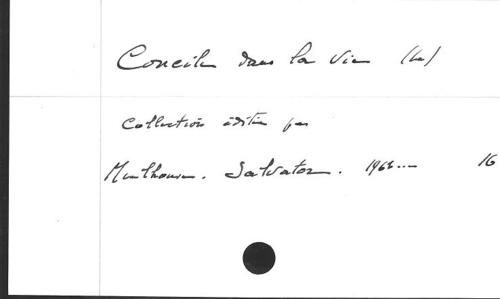 Concile dans la vie (Le)
Collection éditée par
Mulhouse. Salvator. 1966... 16